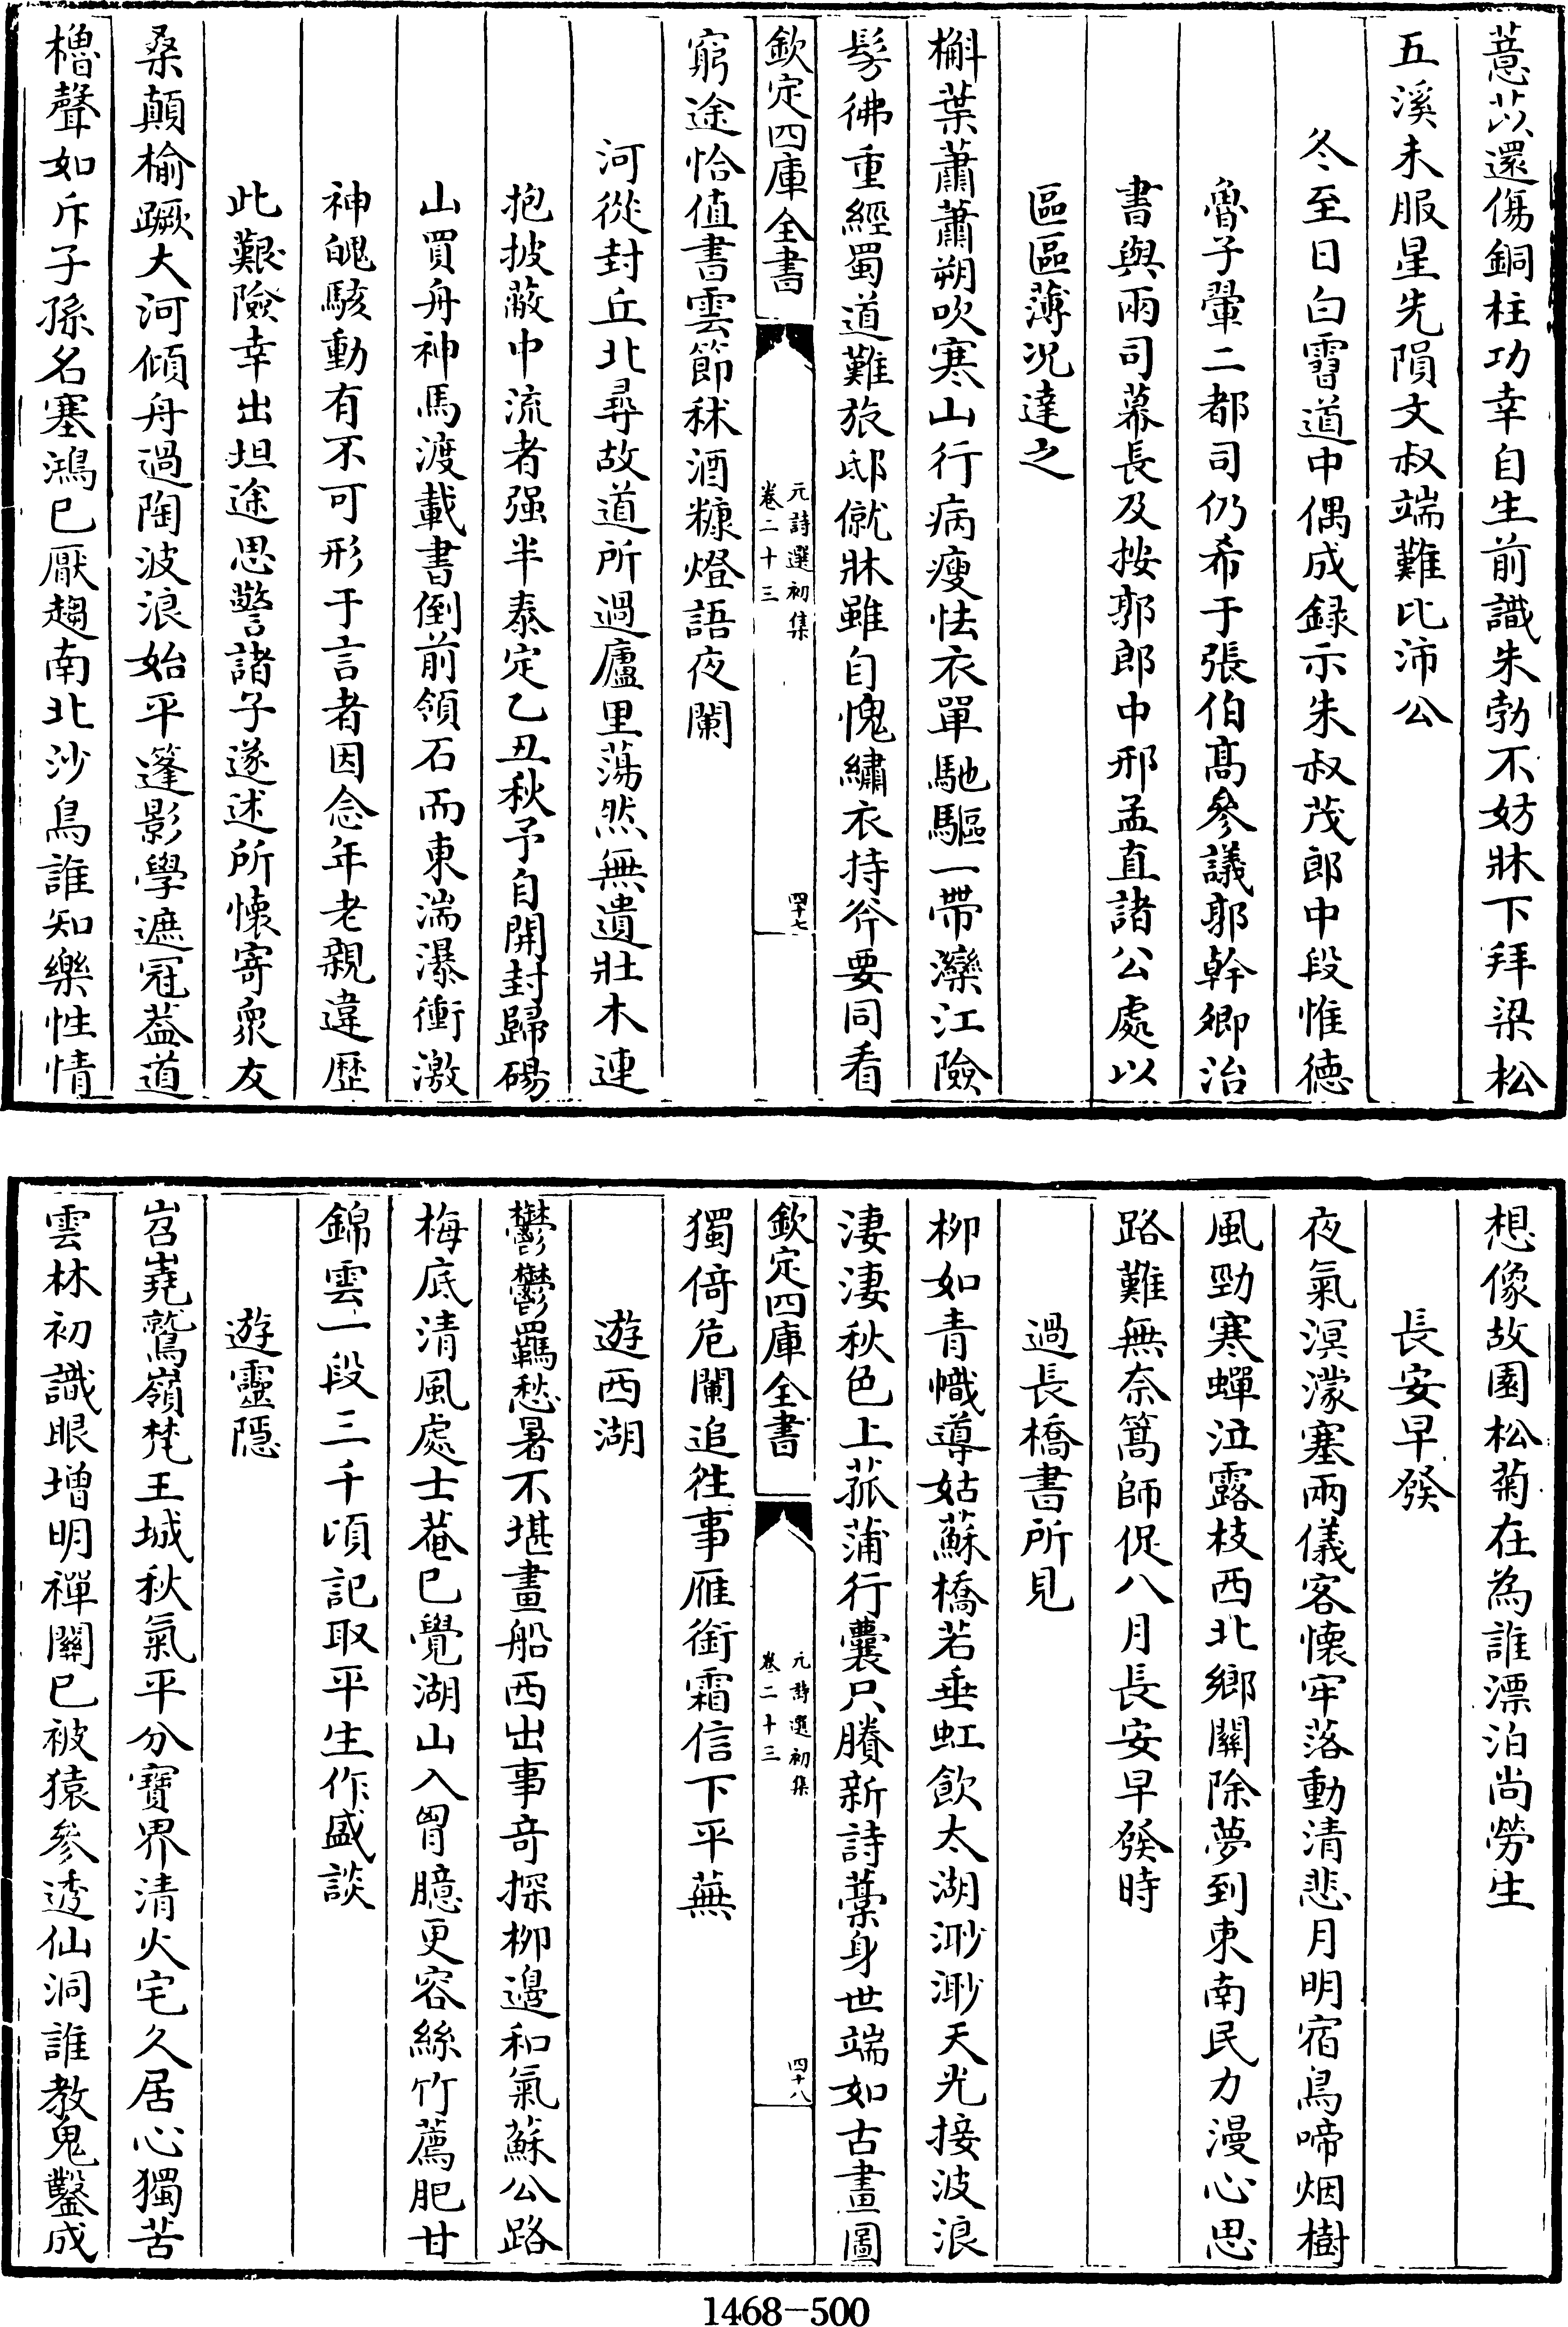 薏苡還傷銅柱功幸自生前識朱勃不妨牀下拜梁松
五溪未服星先隕文叔端難比沛公
冬至日白霫道中偶成録示朱叔茂郎中段惟徳
魯子翬二都司仍希于張伯髙參議郭幹卿治
書與兩司幕長及按郭郎中邢孟直諸公處以
區區薄況達之
槲葉蕭蕭朔吹寒山行病瘦怯衣單馳驅一帶灤江險
髣彿重經蜀道難旅邸僦牀雖自愧繡衣持斧要同看
欽定四庫全書
元詩選初集
卷二十三
四十七
窮途恰值書雲節秫酒糠燈語夜闌
河從封丘北尋故道所過廬里蕩然無遺壯木連
抱披蔽中流者强半泰定乙丑秋予自開封歸碭
山買舟神馬渡載書倒前領石而東湍瀑衝激
神魄駭動有不可形于言者因念年老親違歴
此艱險幸出坦途思警諸子遂述所懐寄衆友
桑顛榆蹶大河傾舟過陶波浪始平篷影學遮冠葢道
櫓聲如斥子孫名塞鴻已厭趨南北沙鳥誰知樂性情
想像故園松菊在為誰漂泊尚勞生
長安早發
夜氣溟濛塞兩儀客懐牢落動清悲月明宿鳥啼烟樹
風勁寒蟬泣露枝西北鄉關除夢到東南民力漫心思
路難無奈篙師促八月長安早發時
過長橋書所見
柳如青幟導姑蘇橋若垂虹飲太湖渺渺天光接波浪
淒淒秋色上菰蒲行囊只賸新詩藁身世端如古畫圖
欽定四庫全書
元詩選初集
卷二十三
四十八
獨倚危闌追徃事雁銜霜信下平蕪
遊西湖
鬱鬱羈愁暑不堪畫船西出事竒探柳邊和氣蘇公路
梅底清風處士菴已覺湖山入胷臆更容絲竹薦肥甘
錦雲一段三千頃記取平生作盛談
遊靈隱
岧嶤鷲嶺梵王城秋氣平分寶界清火宅久居心獨苦
雲林初識眼增明禪關已被猿參透仙洞誰教鬼鑿成
1468-500